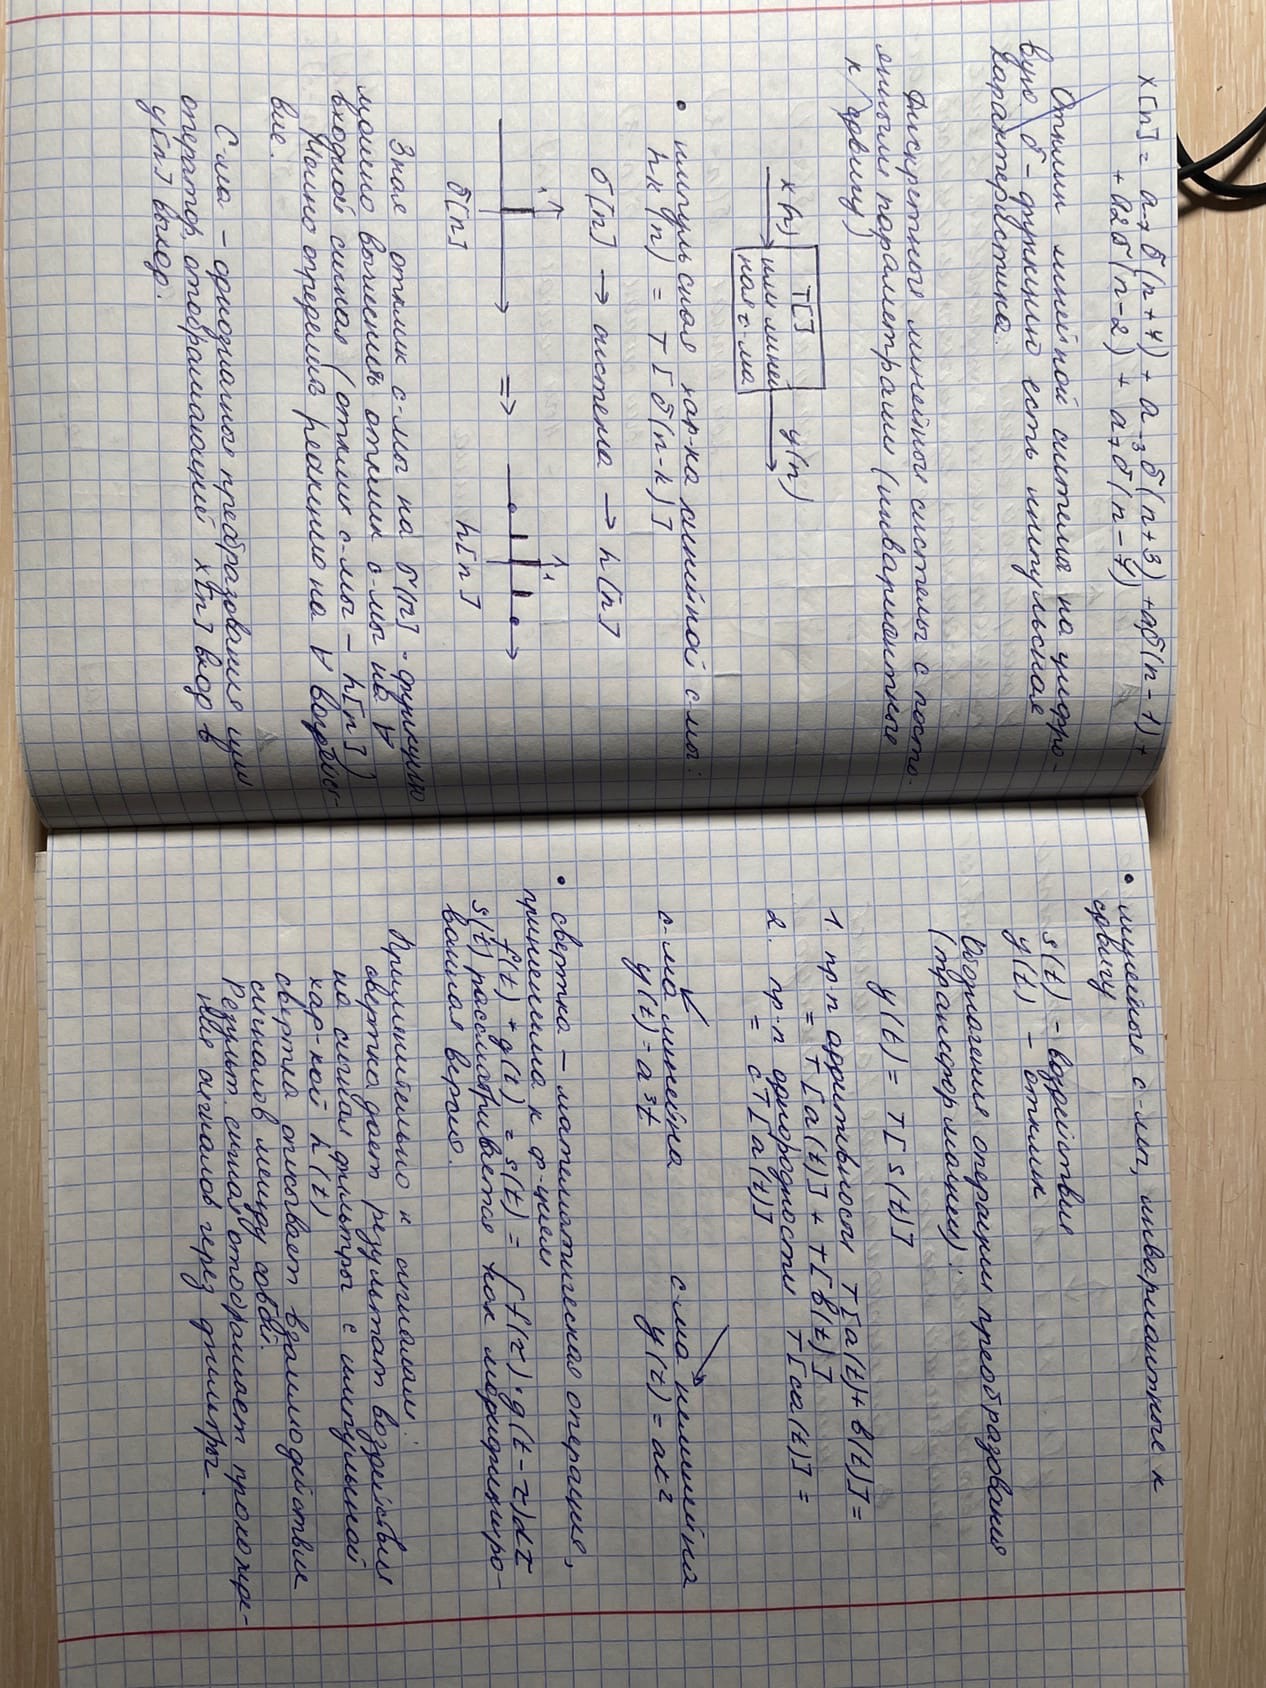 x[n] = a₋₇ б(n+7) + a₋₃б(n+3) + a₁б(n-1) +
+ a2б(n-2) + a₇б(n-7)
Отклик линейной системы на цифро-
вую б - функцию есть импульсная
характеристика.
Дискретные линейные системы с посто-
янными параметрами (инвариантные
к сдвигу)
x(n)
T[]
или линей
ная с-ма
y(n)
• импульсная хар-ка линейной с-мы:
hk(n) = T[б(n-k)]
б[n] → система → h[n]
1
1
⇒
б[n]
h[n]
Зная отклик с-мы на б[n] - функцию
можно вычислить отклик с-мы на ∀
входной сигнал (отклик с-мы - h[n])
Можно определить реакцию на ∀ воздейст-
вие.
С-ма - однозначные преобразования или
оператор, отображающий x[n] вход в
y[n] выход.
• линейные с-мы, инвариантные к
сдвигу
s(t) - воздействие
y(t) - отклик
Обозначения операции преобразования
(трансформации):
y(t) = T[s(t)]
1. пр-п аддитивности T[a(t)+b(t)] =
= T[a(t)] + T[b(t)]
2. пр-п однородности T[ca(t)] =
= cT[a(t)]
с-ма линейна
y(t) = a³t
с-ма нелинейна
y(t) = at²
• свертка - математическая операция,
применима к ф-циям
f(t) * g(t) = s(t) = ∫f(τ)·g(t-τ)dτ
s(t) рассматривается как модифициро-
ванная версия.
Применительно к сигналам:
свертка дает результат воздействия
на сигнал фильтры с импульсной
хар-кой h(t)
свертка описывает взаимодействие
сигналов между собой.
Результ. сигнал отображает прохожде-
ния сигналов через фильтры.